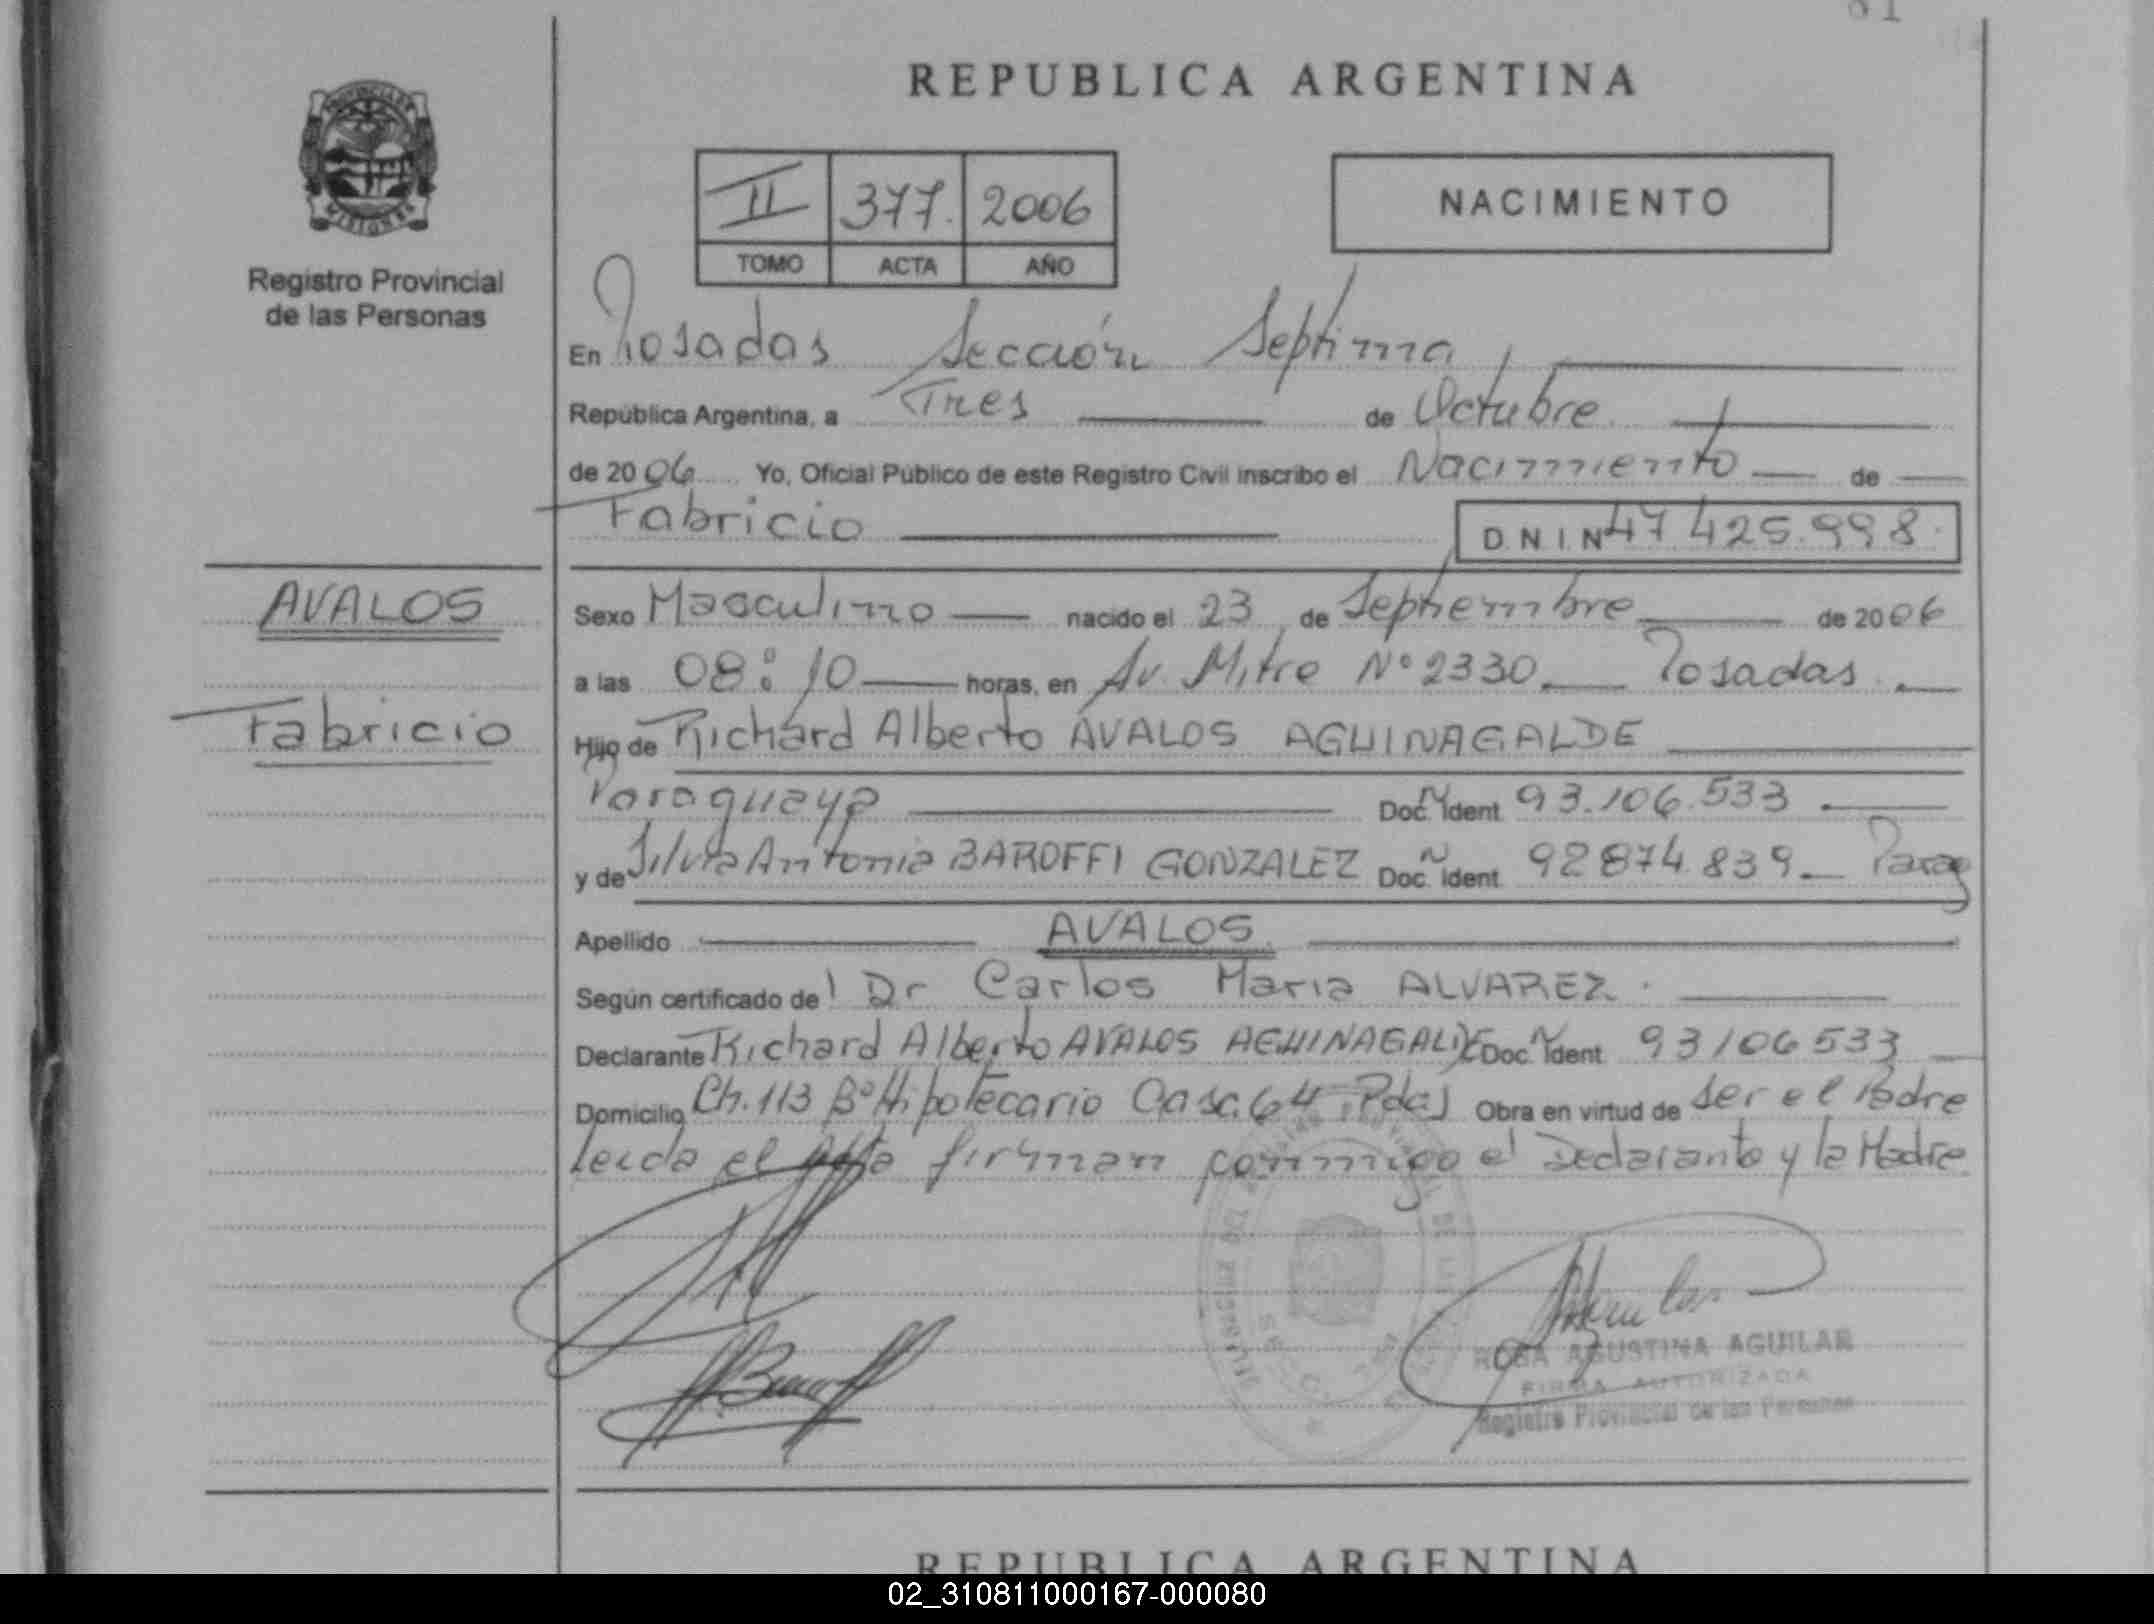 REPUBLICA ARGENTINA
PROVINCIA DE
MISIONES
Registro Provincial
de las Personas
II 377. 2006
TOMO ACTA AÑO
NACIMIENTO
En Posadas Sección Septima
República Argentina, a Tres de Octubre
de 2006 Yo, Oficial Público de este Registro Civil inscribo el Nacimiento de
Fabricio D.N.I.Nº 47 425.998.
AVALOS
Fabricio
Sexo Masculino nacido el 23 de Septiembre de 2006
a las 08:10 horas, en Av. Mitre Nº 2330 Posadas.
Hijo de Richard Alberto AVALOS AGUINAGALDE
Paraguaya Doc. Ident 93.106.533
y de Silvia Antonia BAROFFI GONZALEZ Doc. Ident 92874.839 Parag
Apellido AVALOS.
Según certificado de Dr Carlos Maria ALVAREZ.
Declarante Richard Alberto AVALOS AGUINAGALDE Doc. Ident 93106533
Domicilio Ch. 113 Bº Hipotecario Casa 64 Pdas Obra en virtud de ser el Padre
leida el Acta firman conmigo el Declarante y la Madre
ROSA AGUSTINA AGUILAR
FIRMA AUTORIZADA
Registro Provincial de las Personas
REPUBLICA ARGENTINA
02_310811000167-000080